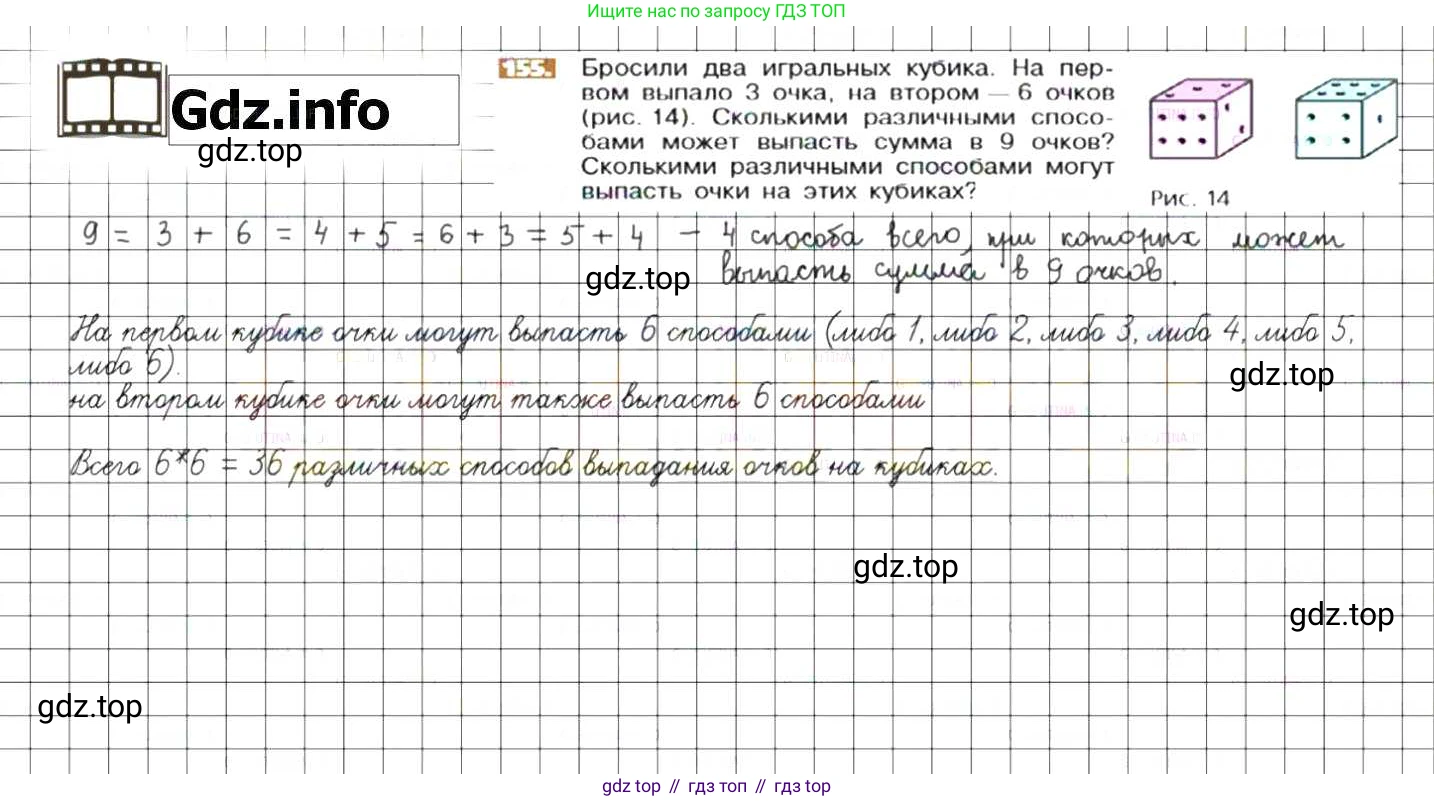 Ищите нас по запросу ГДЗ ТОП
Gdz.info
gdz.top
155. Бросили два игральных кубика. На пер-
вом выпало 3 очка, на втором — 6 очков
(рис. 14). Сколькими различными спосо-
бами может выпасть сумма в 9 очков?
Сколькими различными способами могут
выпасть очки на этих кубиках?
Рис. 14
9 = 3 + 6 = 4 + 5 = 6 + 3 = 5 + 4 – 4 способа всего, при которых может
выпасть сумма в 9 очков.
gdz.top
На первом кубике очки могут выпасть 6 способами (либо 1, либо 2, либо 3, либо 4, либо 5,
либо 6).
gdz.top
на втором кубике очки могут также выпасть 6 способами
Всего 6*6 = 36 различных способов выпадания очков на кубиках.
gdz.top
gdz.top
gdz.top
gdz top // гдз топ // gdz top